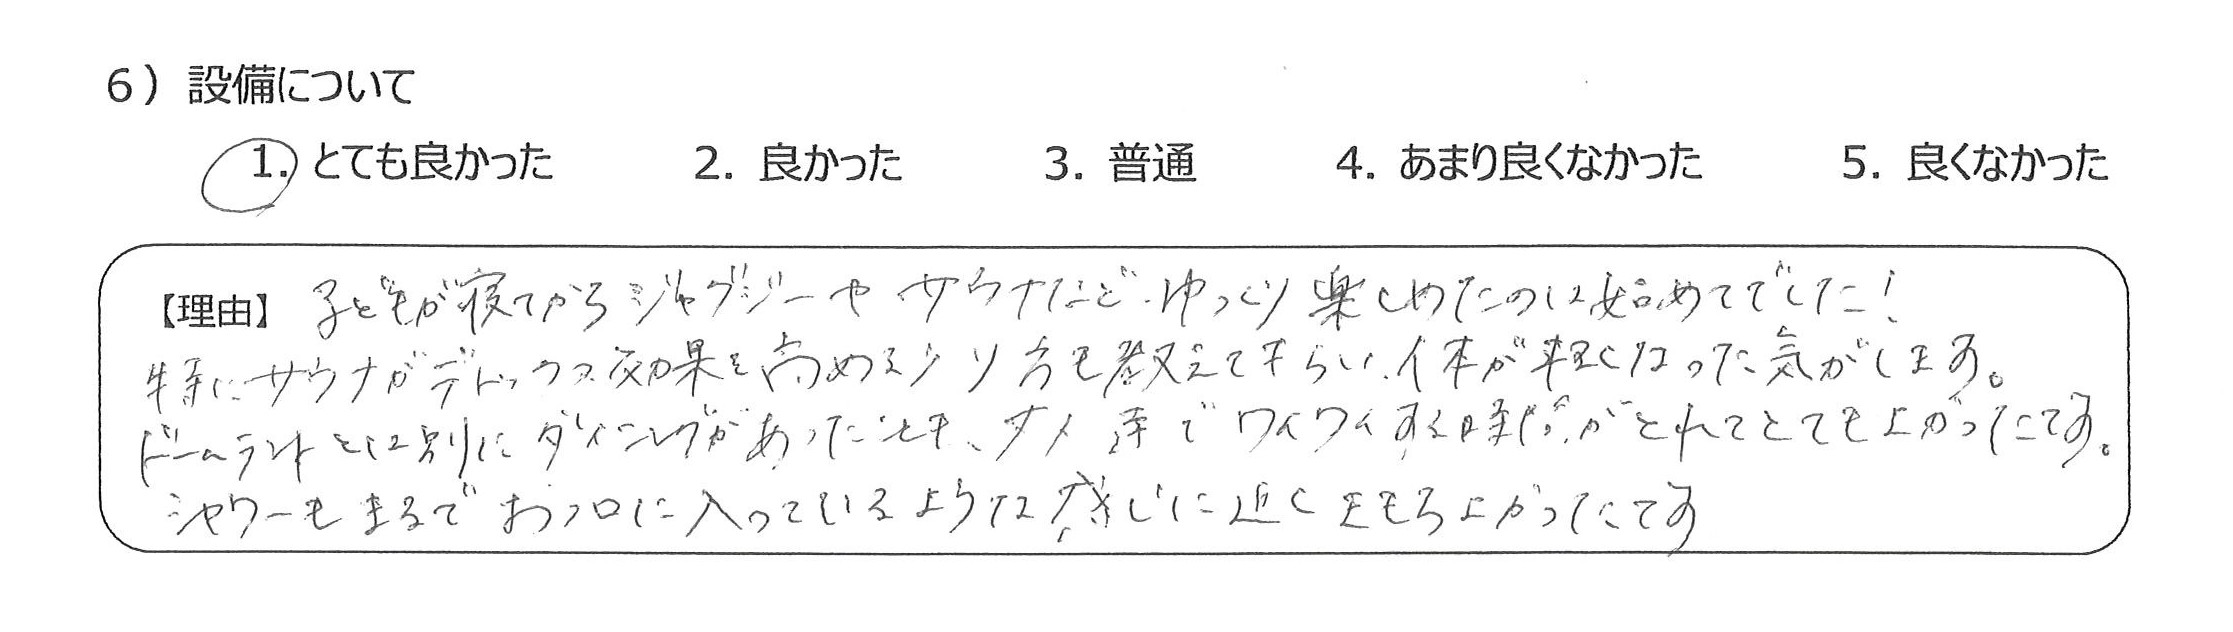 6）設備について
1. とても良かった 2. 良かった 3. 普通 4. あまり良くなかった 5. 良くなかった
【理由】子どもが寝てからジャグジーやサウナなど、ゆっくり楽しめたのは始めてでした！
特にサウナがデトックス効果を高める入り方も教えてもらい、体が軽くなった気がします。
ドームテントとは別にダイニングがあったことも、でワイワイする時間がとれてとてもよかったです。
シャワーもまるでおフロに入っているような感じに近くきもちよかったです